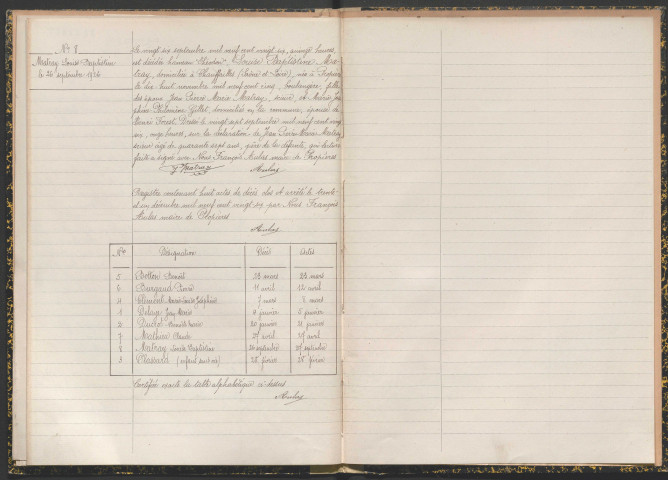 N° 8
Matray Louise Baptistine
le 26 septembre 1926
Le vingt six septembre mil neuf cent vingt six, à onze heures,
est décédée Louise Baptistine Ma-
tray, domiciliée à Chauffailles (Saône et Loire), née à Propières
le dix huit novembre mil neuf cent cinq, boulangère, fille
des époux Jean Pierre Marie Matray, scieur, et Marie Jo-
séphine Philomène Gillet, domiciliés en la commune, épouse de
Forest. Dressé le vingt sept septembre mil neuf cent vingt
six, onze heures, sur la déclaration de Jean Pierre Marie Matray,
scieur âgé de quarante sept ans, père de la défunte, qui lecture
faite a signé avec Nous François Aulas maire de Propières.
J Matray Aulas
Registre contenant huit actes de décès clos et arrêté le trente
et un décembre mil neuf cent vingt six par Nous François
Aulas maire de Propières
Aulas
Nos Désignation Décès Actes
5 Botton Benoît 23 mars 23 mars
6 Burgaud Pierre 11 avril 12 avril
4 Clément Marie Louise Joséphine 7 mars 8 mars
1 Delaye Jean Marie janvier janvier
2 Benoît Marie 20 janvier 21 janvier
7 Mathieu Claude avril avril
8 Matray Louise Baptistine 26 septembre 27 septembre
3 Plassard (enfant sans vie) 25 février 25 février
Certifiée exacte la table alphabétique ci dessus
Aulas